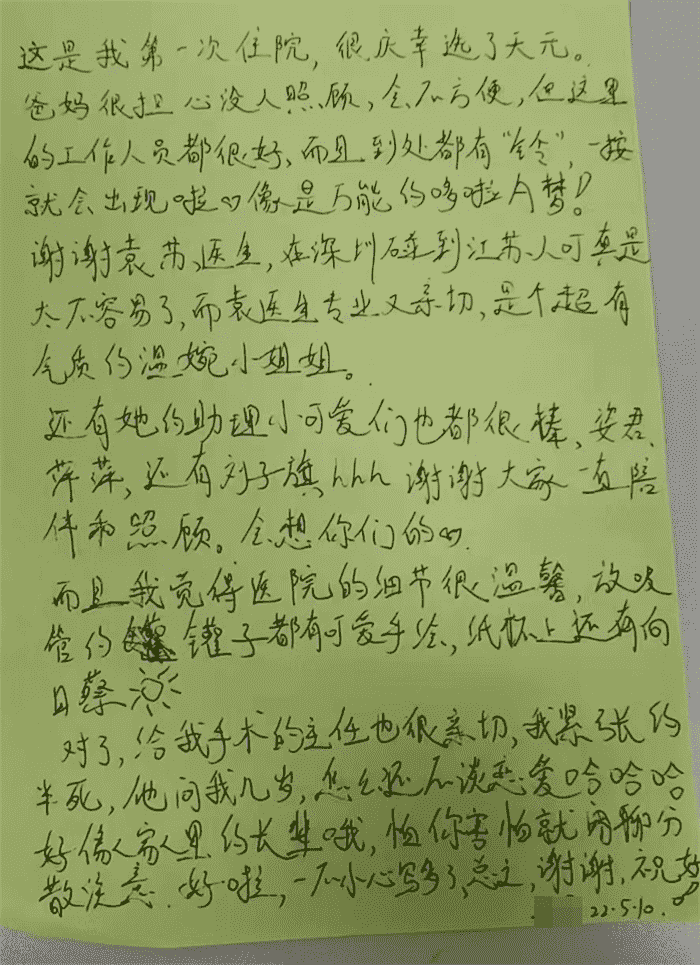 这是我第一次住院，很庆幸选了天元。
爸妈很担心没人照顾，会不方便，但这里
的工作人员都很好、而且到处都有“铃”，一按
就会出现啦♡像是万能的哆啦A梦！
谢谢袁苏医生，在深圳碰到江苏人可真是
太不容易了，而袁医生专业又亲切，是个超有
气质的温婉小姐姐。
还有她的助理小可爱们也都很棒，姿君、
萍萍，还有刘子旗hhh 谢谢大家一直陪
伴和照顾。会想你们的♡
而且我觉得医院的细节很温馨，放吸
管的罐子都有可爱手绘，纸杯上还有向
日葵
对了，给我手术的主任也很亲切，我紧张的
半死，他问我几岁，怎么还不谈恋爱哈哈哈
好像家里的长辈哦，怕你害怕就闲聊分
散注意. 好啦，一不小心写多了，总之，谢谢，祝好
22.5.10.